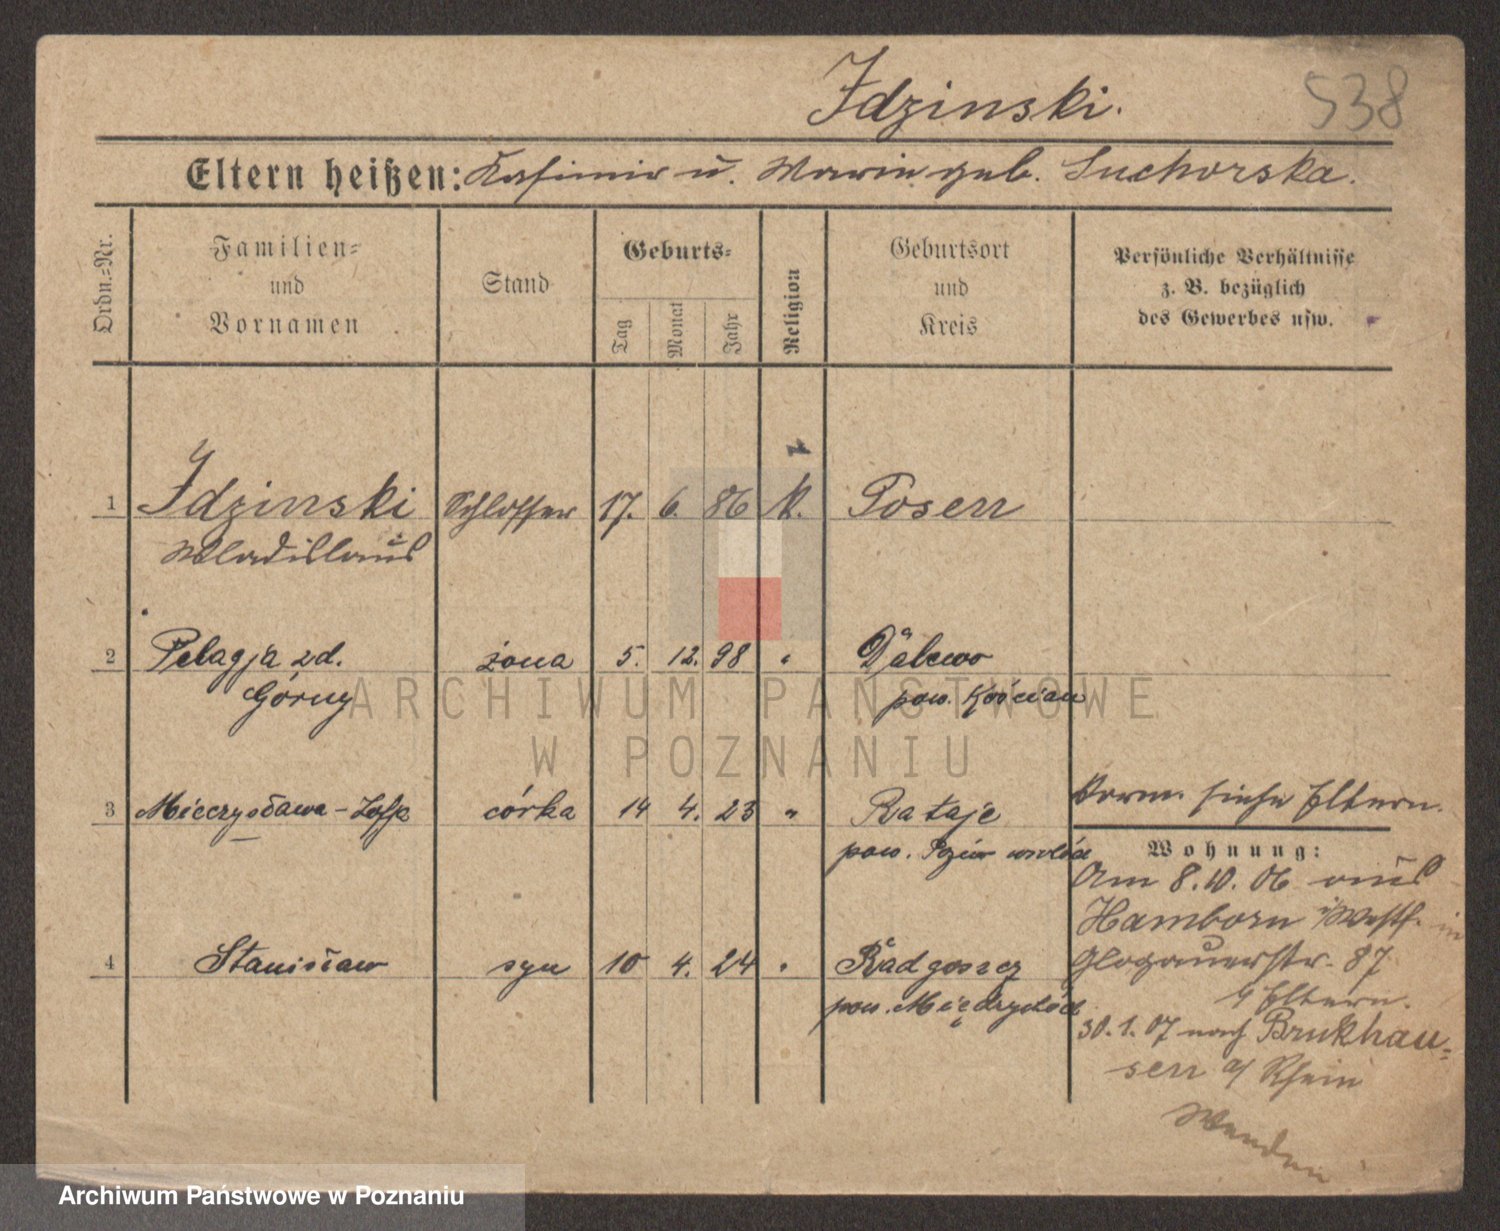 Idzinski.
538
Eltern heißen: Kasimir u. Marie geb. Suchorska.
Ordn.-Nr.
Familien-
und
Vornamen
Stand
Geburts-
Tag
Monat
Jahr
Religion
Geburtsort
und
Kreis
Persönliche Verhältnisse
z. B. bezüglich
des Gewerbes usw.
1 Idzinski Schlosser 17. 6. 86 k. Posen
Wladislaus
2 Pelagja zd. żona 5. 12. 98 " Dalewo
Górny pow. Kościan
3 Mieczysława - córka 14 4. 23 " Rataje
pow.
4 Stanisław syn 10 4. 24 " Radgoszcz
pow. Międzychód
Vorm. siehe Eltern.
Wohnung:
Am 8.10.06 aus
Hamborn i/Westf. in
Glogauerstr. 87
b/ Eltern.
30.1.07 nach Bruckhau-
sen a/ Rhein
Wenden
ARCHIWUM PAŃSTWOWE
W POZNANIU
Archiwum Państwowe w Poznaniu